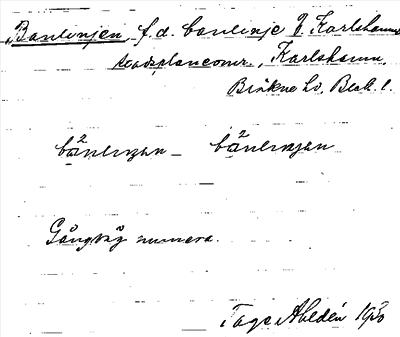 Banlinjen, f.d. banlinje i Karlshamns
stadsplaneomr., Karlshamn,
Bräkne hd, Blek. l.
bā²nlinjan – bā²nlinjan
Gångväg numera.
Tage Ahldén 1930